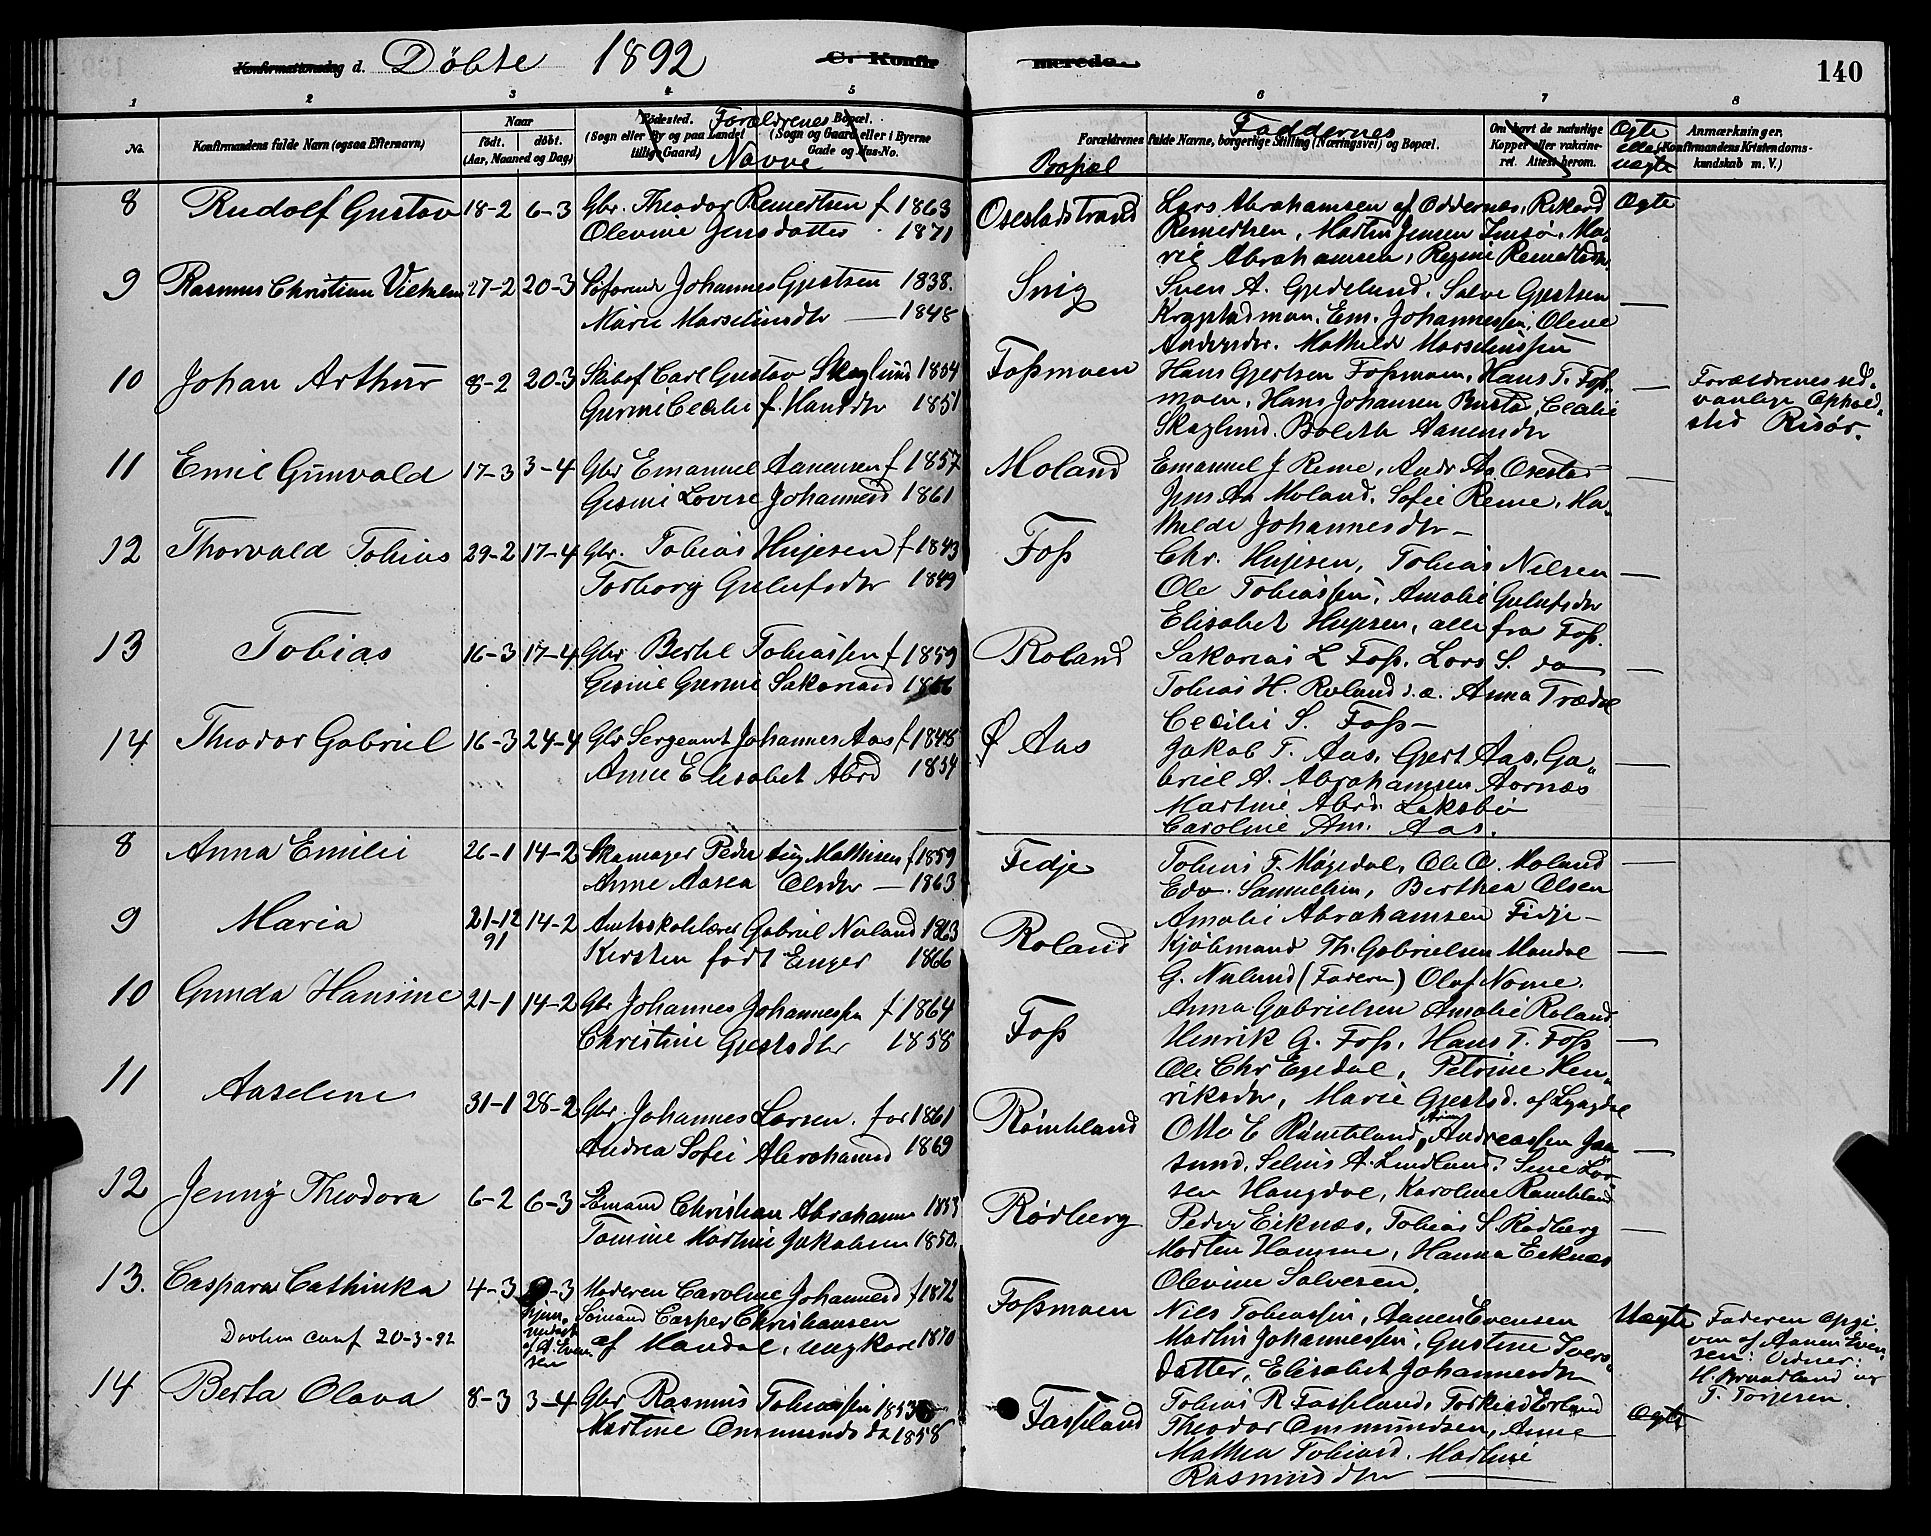 Konfirmationsdag d. Döbte 1892 C. Konfirmerede. 140
1 2 3 4 5 6 7 8
No. Konfirmandens fulde Navn (ogsaa Efternavn) Naar født. döbt. (Aar, Maaned og Dag) Fødested. (Sogn eller By og paa Landet tillige Gaard) Forældrenes Navne Bopæl. (Sogn og Gaard eller i Byerne Gade og Hus-No.
Bopæl Forældrenes fulde Navne, borgerlige Stilling (Næringsvei) og Bopæl. Faddernes Om havt de naturlige Kopper eller vakcineret. Attest herom. Ægte eller uægte Anmærkninger, (Konfirmandens Kristendomskundskab m. V.)
8 Rudolf Gustav 18-2 6-3 Gbr. Theodor Remertsen f 1863
Olevine Jensdatter 1871
Osestadstrand Lars Abrahamsen af Oddernes, Rikard Ægte
Remertsen, Martin Jensen Imsø, Ma-
rie Abrahamsen, Regine Remertsdtr
9 Rasmus Christian Vilhelm 27-2 20-3 Søfarende Johannes Gjertsen 1838.
Marie Marselinsdtr — 1848
Snig Sven A. Gjedelund. Salve Gjertsen —
Em. Johannessen, Oleve
Andersdr. Mathilde Marselinssen
10 Johan Arthur 8-2 20-3 Skibsf Carl Gustav Skaglund 1854
Gurine Cecilie f. Hansdtr 1851
Fossmoen Hans Gjertsen Fossmoen, Hans T. Foss- —
moen, Hans Johansen Cecilie
Skaglund. Bolette Aanensdtr
Forældrenes sed-
vanlige Ophold-
sted Risør.
11 Emil Gunvald 17-3 3-4 Gbr Emanuel Aanensen f 1857
Gesine Lovise Johannesd 1861
Moland Emanuel J Reme, Andr Aa Osestad —
Jens Aa Moland. Sofie Reme, Ma-
thilde Johannesdtr —
12 Thorvald Tobias 29-2 17-4 Gbr. Tobias Hujesen f 1843
Torborg Gulufsdtr 1849
Foss Chr. Hujesen, Tobias Nilsen —
Ole Tobiassen, Amalie Gulufsdtr
Elisabet Hujesen, alle fra Foss.
13 Tobias 16-3 17-4 Gbr Bertil Tobiassen f 1859
Gesine Gurine Sakariasd 1866
Roland Sakarias L Foss. Lars S. do —
Tobias H. Roland s.a. Anna Trædal
Cecilie S. Foss —
14 Theodor Gabriel 16-3 24-4 Gbr Sergeant Johannes Aas f 1848
Anne Elisabet Abrd 1854
Ø Aas Jakob T. Aas, Gjert Aas, Ga- —
briel A. Abrahamsen Aarnæs
Martine Abrd. Laksbø
Caroline Am. Aas.
8 Anna Emilie 26-1 14-2 Skomager Peder Mathisen f 1859
Anne Aasea Olsdtr — 1863
Fidje Tobias T. Møgedal, Ole O. Moland —
Edv. Samuelsen, Berthea Olsen
Amalie Abrahamsen Fidje —
9 Maria 21-12 91 14-2 Amtsskolelærer Gabriel Nuland 1863
Kersten født Enger 1866
Roland Kjøbmand Th. Gabrielsen Mandal —
G. Nuland (Faderen) Olaf Nome.
Anna Gabrielsen Amalie Roland.
10 Gunda Hansine 21-1 14-2 Gbr Johannes Johannessen f 1864
Christine Gjertsdtr 1858
Foss Henrik G. Foss, Hans T. Foss —
Ole Chr Egedal, Petrine Hen-
riksdtr, Marie Gjertsd. af Lyngdal
11 Aaselene 31-1 28-2 Gbr. Johannes Larsen for 1861
Andrea Sofie Abrahamsd 1869
Rømteland Otto E Rømteland, Andreassen Jaa- —
sund, Selius A. Lindland. Sine Lar-
sen Haugdal, Karoline Rømteland
12 Jenny Theodora 6-2 6-3 Sømand Christian Abrahamsen 1853
Tomine Martine Jakobsen 1850.
Rødberg Peder Eiknæs, Tobias S. Rødberg —
Morten Homme, Hanna Eiknæs
Olevine Salvesen.
13. Caspara Cathinka 4-3 -3 Moderen Caroline Johannesd f 1872
Daaben conf 20-3-92 hjemmedøbt af A. Evensen Sømand Casper Christiansen
af Mandal, ungkarl 1870
Fossmoen Nils Tobiassen, Aanen Evensen Uægte
Martin Johannessen, Gustine Ivers-
datter, Elisabet Johannesdtr
Faderen Opgi-
ven af Aanen Even-
sen: Vidner:
H. Braadland og
T. Torjesen.
14 Berta Olava 8-3 3-4 Gbr Rasmus Tobiassen 1853
Martine Ommundsd. 1858
Fasseland Tobias R Fasseland, Torkild Erland Ægte
Theodor Ommundsen, Anne
Mathea Tobiasd. Martine
Rasmusdtr —